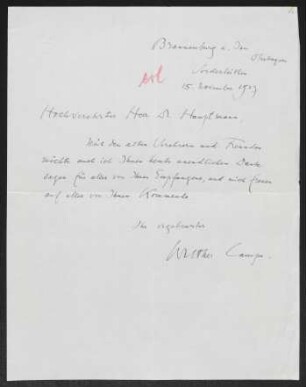 Brannenburg a. Inn
Oberbayern
15. November 1937
erl
Hochverehrter Herr Dr. Hauptmann,
Mit den alten Verehrern und Freunden
möchte auch ich Ihnen heute unendlichen Dank
sagen für alles von Ihnen Empfangene, und mich freuen
auf alles von Ihnen Kommende
Ihr ergebenster